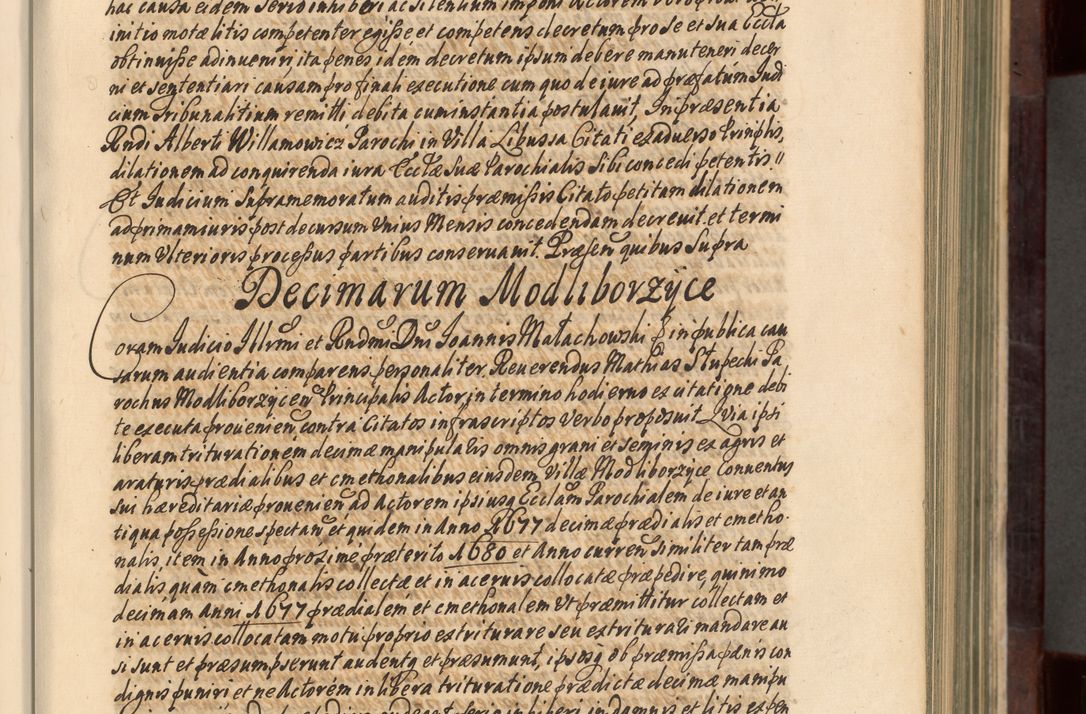 hac causa eidem serio inhiberi ac silentium imponi Actorem vero
initio motæ litis competenter egisse et competens decretum pro se et sua Eccla
obtinuisse adinveniri, ita penes idem decretum ipsum debere manuteneri decer
ni et sententiari causam pro finali executione cum quo de iure ad præfatum Iudi
cium Tribunalitium remitti debita cum instantia postulavit, In præsentia
Rndi Alberti Willamowicz Parochi in Villa Libussa Citati ex adverso Prinplis,
dilationem ad conquirenda iura Ecctæ suæ Parochialis sibi concedi petentis //
Et Iudicium Supramemoratum auditis præmissis Citato petitam dilationem
ad primam iuris post decursum Unius Mensis concedendam decrevit et termi
num Ulterioris processus partibus conservavit. Præsen quibus Supra
Decimarum Modliborzÿce
Coram Iudicio Illrmi et Rndmi Dni Ioannis Małachowski in publica cau
sarum audientia comparens personaliter Reverendus Mathias Słupechi Pa
rochus Modliborzycen Principalis Actor, in termino hodierno ex citatione debi
te executa provenien contra Citatos infrascriptos verbo proposuit. Quia ipsi
liberam triturationem decimæ manipulatis omnis grani et seminis ex agris et
araturis prædialibus et cmethonalibus eiusdem Villæ Modliborzyce Conventus
sui hæreditariæ provenien ad Actorem ipsiusq Ecclam Parochialem de iure et an
tiqua possessione spectan et quidem in Anno 1677 decimæ prædialis et cmetho-
nalis, item in Anno proxime præterito 1680 et Anno curren similiter tam præ
dialis quàm cmethonalis collectæ et in acervis collocatæ præpedire, quinimo
decimam Anni 1677 prædialem et cmethonalem Ut præmittitur collectam et
in acervis collocatam motu proprio extriturare seu extriturati mandare au
si sunt et præsumpserunt audentq et præsumunt, ipsosq ob præmissa pœnis con
dignis puniri et ne Actorem in libera trituratione prædictæ decimæ manipu